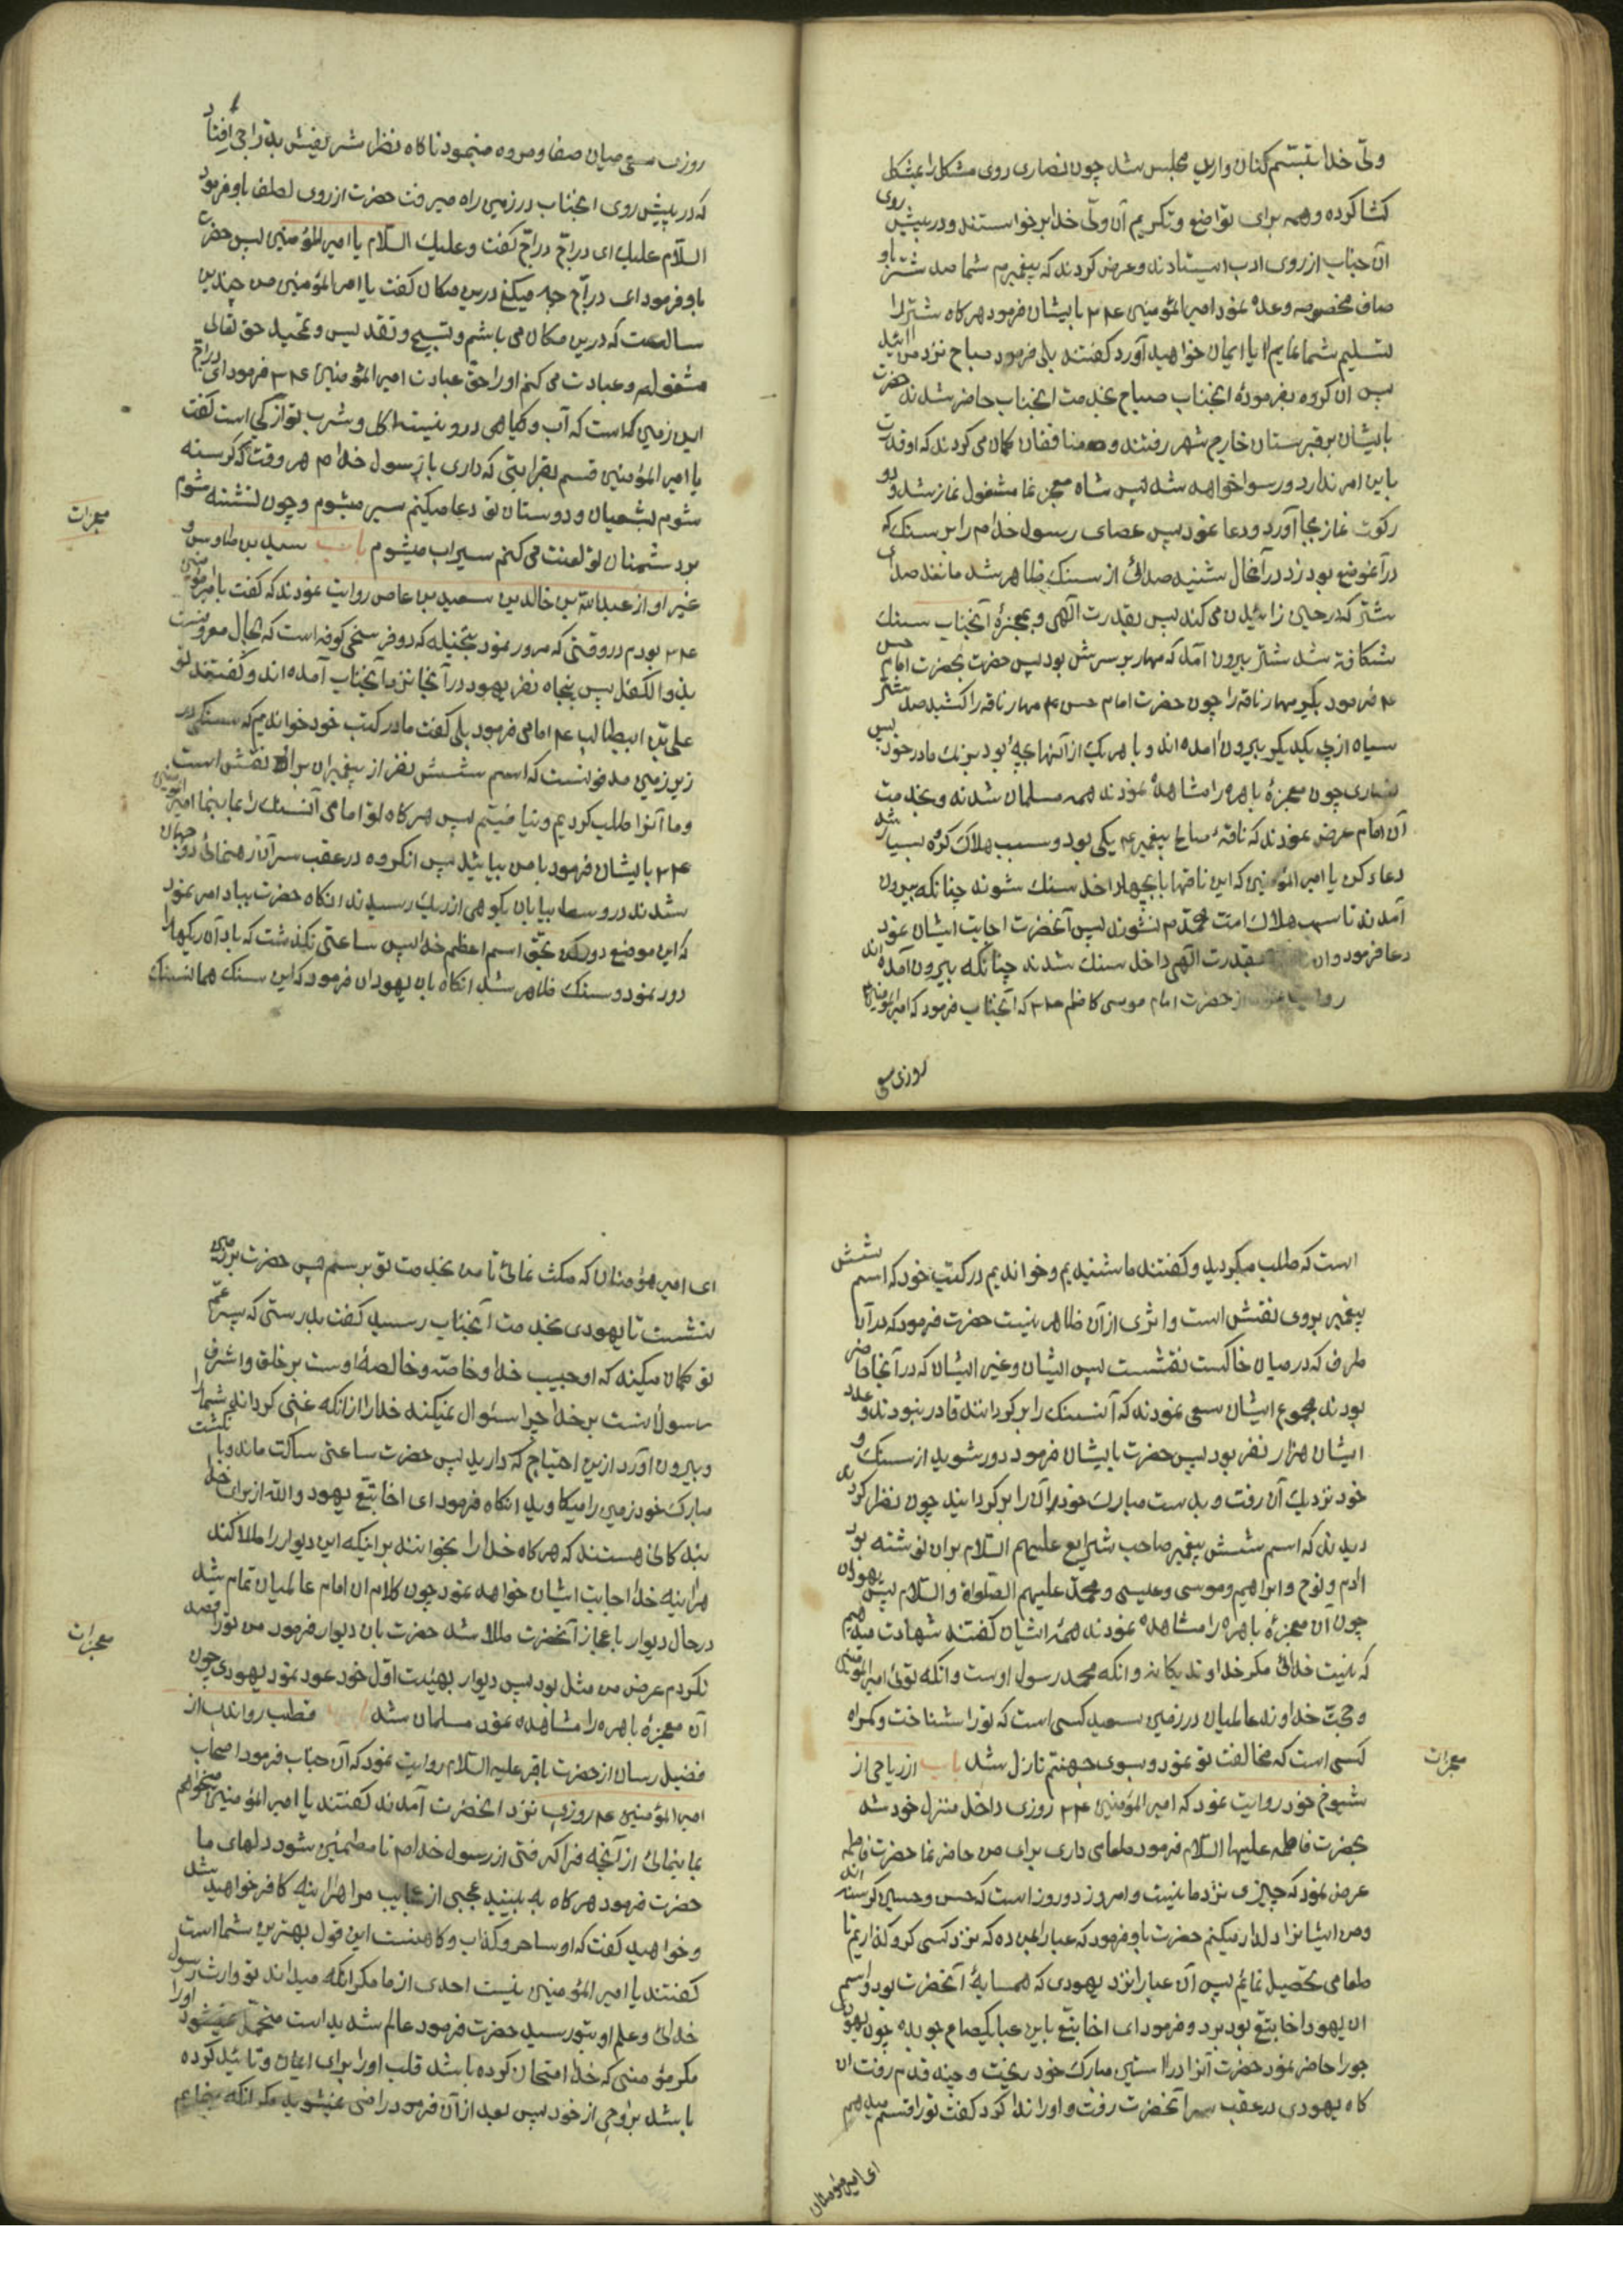 ولّی خدا تبسّم کنان وارد مجلس شد چون نصاری روی مشکل را بمشکل
کشا کرده و همه برای تواضع و تکریم آن ولّی خدا برخواستند و در پیش روی
آن جناب از روی ادب ایستادند و عرض کردند که پیغمبرم شما صد شتر باو
صاف مخصوصه وعده نمود امیرالمؤمنین ع م م بایشان فرمود هرکاه شترانرا
تسلیم شما نمایم ایا ایمان خواهید آورد کفتند بلی فرمود صباح نزد من ائید
پس ان کروه بفرمودهٔ انجناب صباح بخدمت انجناب حاضر شدند حضرت
بایشان بر قبرستان خارج شهر رفتند و منافقان کمان می کردند که او قدرت
باین امر ندارد و رسوا خواهد شد پس شاه معجز نما مشغول نماز شد و دو
رکوت نماز بجا آورد و دعا نمود پس عصای رسول خدا م را بر سنک که
در آنموضع بود زد در آنحال شنیده صدائی از سنک ظاهر شد مانند صدای
شتر که در حین زائیدن می کند پس بقدرت آلهی و بمعجزهٔ آنجناب سنک
شکافته شد شتر بیرون آمد که مهار بر سرش بود پس حضرت بحضرت امام حسن
ع م فرمود بکیر مهار ناقه را چون حضرت امام حسن ع م مهار ناقه را کشید صد شتر
سیاه از پی یکدیکر بیرون امده اند و با هر یک از آنها بچهٔ بود بزیک مادر خود پس
نصاری چون معجزهٔ باهره را مشاهدهٔ نمودند همه مسلمان شدند و بخدمت
آن امام عرض نمودند که ناقهٔ صالح پیغمبر ع م یکی بود و سبب هلاک کروه بسیار شد
دعاء کن یا امیرالمؤمنین که این ناقها با بچها داخل سنک شوند چنانکه بیرون
آمدند تا سبب هلاک امت محمّد م نشوند پس آنحضرت اجابت ایشان نمود
دعا فرمود وان بقدرت الهی داخل سنک شدند چنانکه بیرون آمده اند
روایت از حضرت امام موسی کاظم ع م م که آنجناب فرمود که امیرالمؤمنین ع
روزی سعی
روزی سعی میان صفا و مروه مینمود ناکاه نظر شریفیش بدرّاجی افتاد
که در پیش روی انجناب در زمین راه میرفت حضرت از روی لطف باو فرمود
السّلام علیک ای درّاج درّاج کفت و علیک السّلام یا امیرالمؤمنین پس حضرت
باو فرمود ای درّاج چه میکنی درین مکان کفت یا امیرالمؤمنین من چندین
سالست که درین مکان می باشم و تسبیح و تقدیس و تحمید حق تعالی
مشغولم و عبادت می کنم او را حق عبادت امیرالمؤمنین ع م م فرمود ای درّاج
این زمین که است که آب و کیاهی درو نیست اکل و شرب تو از کی است کفت
یا امیرالمؤمنین قسم بقرابتی که داری با رسول خدا م هر وقت که کرسنه
شوم بشعیان و دوستان تو دعا میکنم سیر میشوم و چون تشنته شوم
بر دشمنان تو لعنت می کنم سیراب میشوم باب سعید بن طاوس و
غیر او از عبدالله بن خالد بن سعید بن عاص روایت نمودند که کفت با امیرالمؤمنین
ع م م بودم در وقتی که مرور نمود بنخیله که دو فرسخی کوفه است که بحال معروفست
بذو الکفل پس پنجاه نفر یهود در آنجا نزد آنجناب آمده اند و کفتند تو
علی بن ابیطالب ع م امامی فرمود بلی کفت ما در کتب خود خواندیم که سنکی در
زیر زمین مدفونست که اسم شش نفر از پیغمبران بران نقش است
و ما آنرا طلب کردیم و نیافتیم پس هرکاه تو امامی آنسنک را بما بنما امیرالمؤمنین
ع م م بایشان فرمود با من بیائید پس انکروه در عقب سر آن رهنمائی دو جهان
شدند در وسط بیابان بکوهی از ریک رسیدند انکاه حضرت بباد امر نمود
که این موضع دور کن بحق اسم اعظم خدا پس ساعتی نکذشت که باد آن ریکها را
دور نمود و سنک ظاهر شد انکاه بان یهودان فرمود که این سنک همان سنک
معجزات
است که طلب میکردید و کفتند ما شنیدیم و خواندیم در کتب خود که اسم شش
پیغمبر بروی نقش است و اثری از آن ظاهر نیست حضرت فرمود که در آن
طرف که در میان خاکست نقشست پس ایشان و غیر ایشان که در آنجا حاضر
بودند مجموع ایشان سعی نمودند که آنسنک را بر کردانند قادر نبودند و عدد
ایشان هزار نفر بود پس حضرت بایشان فرمود دور شوید از سنک و
خود نزدیک آن رفت و بدست مبارک خود آن را بر کردانید چون نظر کردند
دیدند که اسم شش پیغمبر صاحب شرایع علیهم السّلام بران نوشته بود
ادم و نوح و ابراهیم و موسی و عیسی و محمّد علیهم الصّلواة و السّلام پس یهودان
چون آن معجزهٔ باهره را مشاهدهٔ نمودند همهٔ ایشان کفتند شهادت میدهیم
که نیست خدائی مکر خداوند یکانه و انکه محمد رسول اوست و انکه توئی امیرالمؤمنین
و حجت خداوند عالمیان در زمین سعید کسی است که تورا شناخت و کمراه
کسی است که مخالفت تو نمود و بسوی جهنّم نازل شد باب از ریاحی از
شیوخ خود روایت نمود که امیرالمؤمنین ع م م روزی داخل منزل خود شد
بحضرت فاطمه علیها السّلام فرمود طعامی داری برای من حاضر نما حضرت فاطمه
عرض نمود که چیزی نزد ما نیست و امروز دو روز است که حسن و حسین کرسنه اند
و من ایشانرا دلدار میکنم حضرت باو فرمود که عبا را بمن ده که نزد کسی کرو کذاریم تا
طعامی تحصیل نمائیم پس آن عبا را نزد یهودی که همسایهٔ آنحضرت بود و اسم
ان یهود اخا بتّع بود برد و فرمود ای اخا بتّع باین عبا یکصاع جو بده چون یهودی
جو را حاضر نمود حضرت آنرا در استین مبارک خود ریخت و چند قدم رفت ان
کاه یهودی در عقب سر آنحضرت رفت و او را ندا کرد کفت تو را قسم میدهم
معجزات
ای امیر مؤمنان
ای امیر مؤمنان که مکث نمائی تا من بخدمت تو برسم پس حضرت بر زمین
بنشست تا یهودی بخدمت آنجناب رسید کفت بدرستی که پسر عمّ
تو کمان میکند که او حبیب خدا و خاصّه و خالصهٔ اوست بر خلق و اشرف
رسولانست بر خدا چرا سئوال نمیکند خدا را از انکه غنی کرداند شما را
و بیرون اورد ازین احتیاج که دارید پس حضرت ساعتی ساکت ماند و با نکشت
مبارک خود زمین را میکاوید انکاه فرمود ای اخا بتّع یهود والله از برای خدا
بندکانی هستند که هرکاه خدا را بخوانند بر اینکه این دیوار را طلا کند
هراینه خدا اجابت ایشان خواهد نمود چون کلام ان امام عالمیان تمام شد
درحال دیوار با عجاز آنحضرت طلا شد حضرت بان دیوار فرمود من تورا قصد
نکردم عرض من مثل بود پس دیوار بهیئت اوّل خود عود نمود یهودی چون
آن معجزهٔ باهره را مشاهده نمود مسلمان شد باب قطب راوندی از
فضیل رسان از حضرت باقر علیه السّلام روایت نمود که آن جناب فرمود اصحاب
امیرالمؤمنین ع م روزی نزد انحضرت آمدند کفتند یا امیرالمؤمنین میخواهیم
بما بنمائی از آنچه فرا کرفتی از رسول خدا م تا مطمئن شود دلهای ما
حضرت فرمود هرکاه به بینید عجبی از عجایب مرا هراینه کافر خواهید شد
و خواهید کفت که او ساحر و کذاب و کاهنست این قول بهترین شما است
کفتند یا امیرالمؤمنین نیست احدی از ما مکر انکه میداند تو وارث رسول
خدائی و علم او بتو رسید حضرت فرمود عالم شدید است متحمّل نمیشود او را
مکر مؤمنی که خدا امتحان کرده باشد قلب او را برای ایمان و تائید کرده
باشد بروحی از خود پس بعد از آن فرمود راضی نمیشوید مکر انکه بنمایم
معجزات